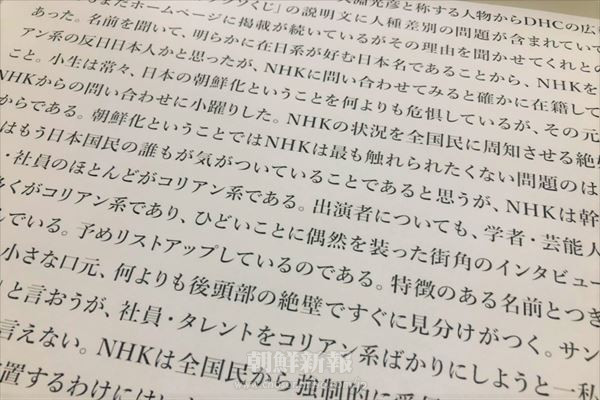 まだホームページに掲載が続いているがその理由を聞かせてくれとの
の説明文に人種差別の問題が含まれていて
光彦と称する人物からDHCの広報
あった。名前を聞いて、明らかに在日系が好む日本名であることから、NHKを
アン系の反日日本人かと思ったが、NHKに問い合わせてみると確かに在籍して
こと。小生は常々、日本の朝鮮化ということを何よりも危惧しているが、その元
NHKからの問い合わせに小躍りした。NHKの状況を全国民に周知させる絶
からである。朝鮮化ということではNHKは最も触れられたくない問題のは
はもう日本国民の誰もが気がついていることであると思うが、NHKは幹
・社員のほとんどがコリアン系である。出演者についても、学者・芸能人
くがコリアン系であり、ひどいことに偶然を装った街角のインタビュー
んでいる。予めリストアップしているのである。特徴のある名前とつき
小さな口元、何よりも後頭部の絶壁ですぐに見分けがつく。サン
」と言おうが、社員・タレントをコリアン系ばかりにしようと一私
言えない。NHKは全国民から強制的に受
置するわけには
朝鮮新報